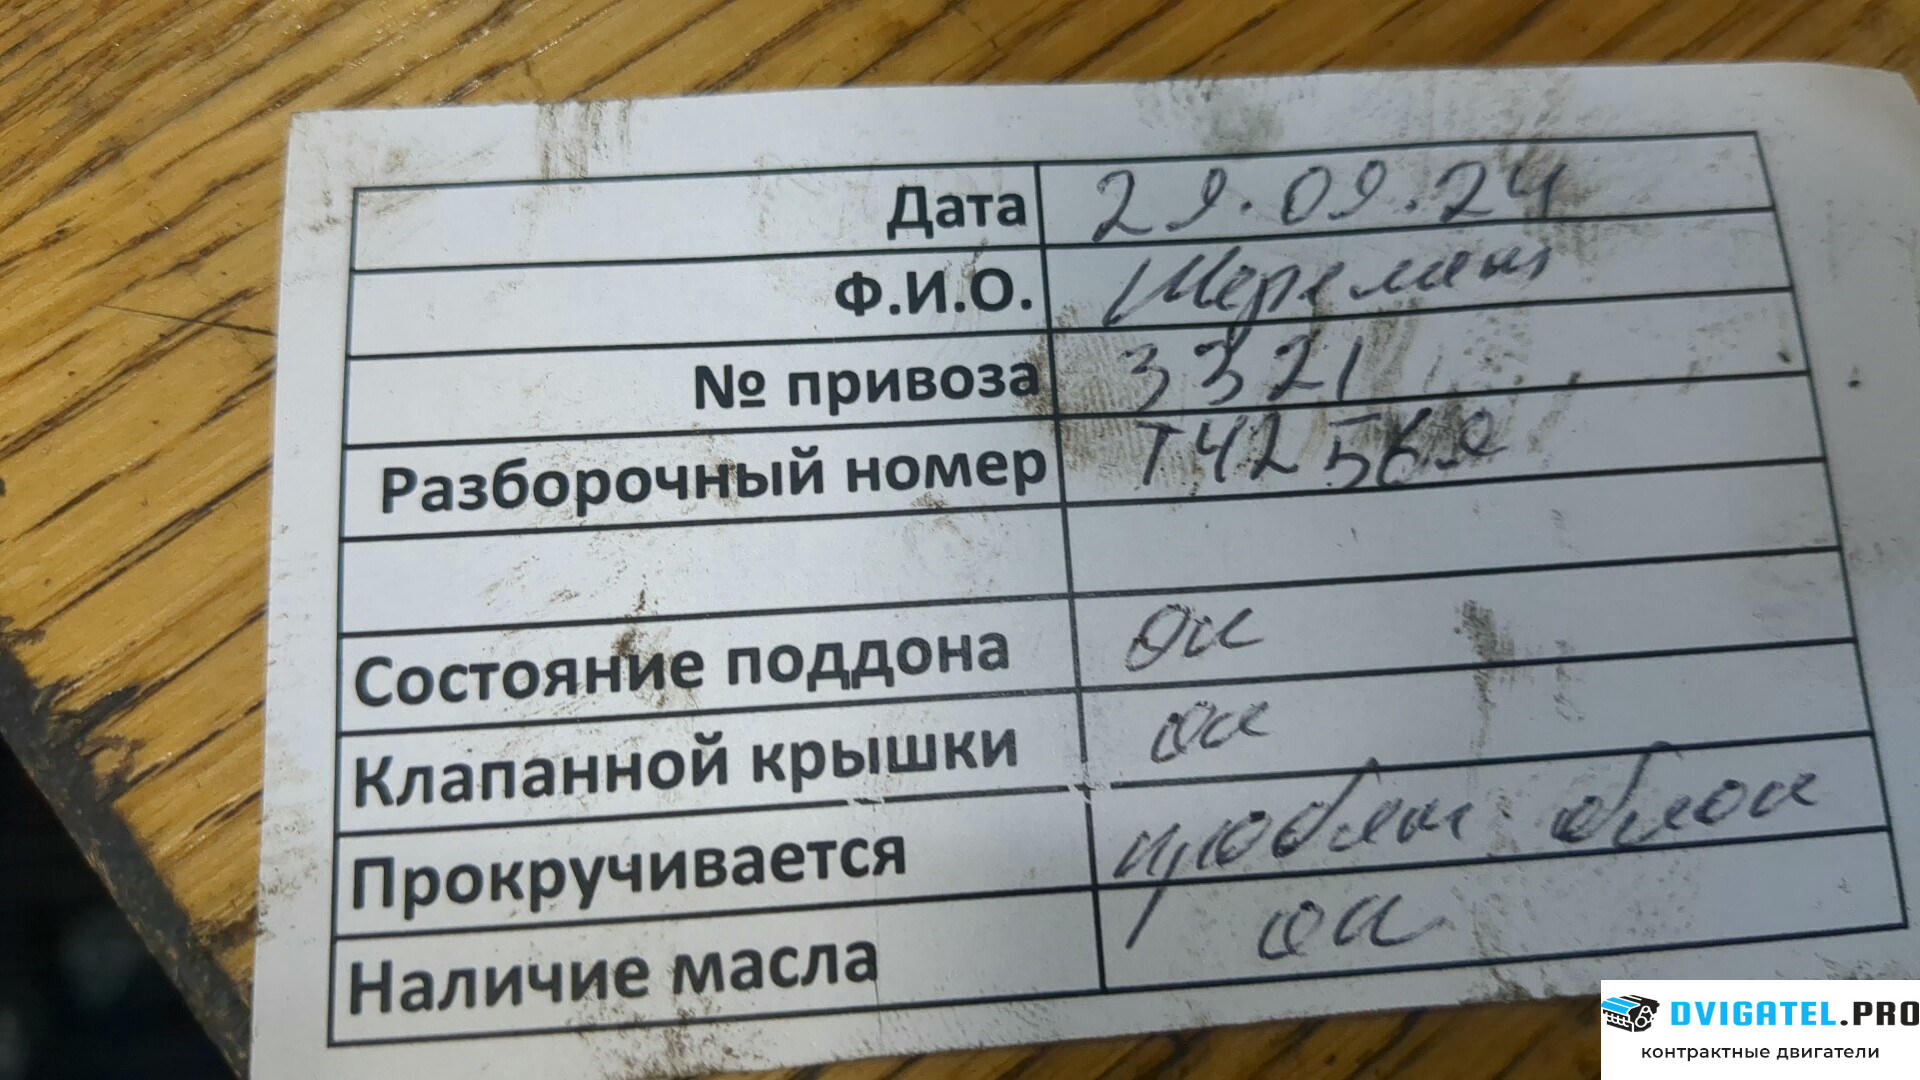 Дата 29.09.24
Ф.И.О.
№ привоза 3321
Разборочный номер
Состояние поддона ок
Клапанной крышки ок
Прокручивается блок
Наличие масла ок
DVIGATEL.PRO
контрактные двигатели